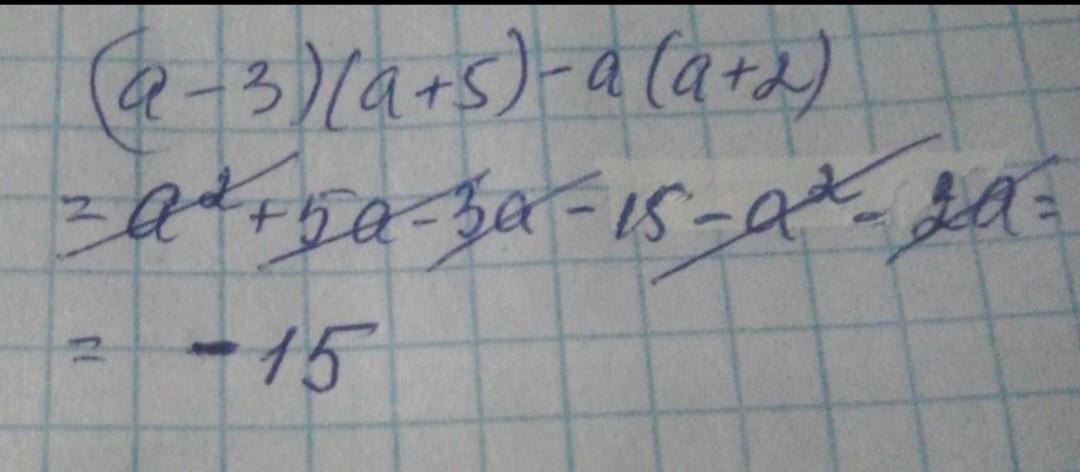 (a-3)(a+5)-a(a+2)
=a²+5a-3a-15-a²-2a=
= -15